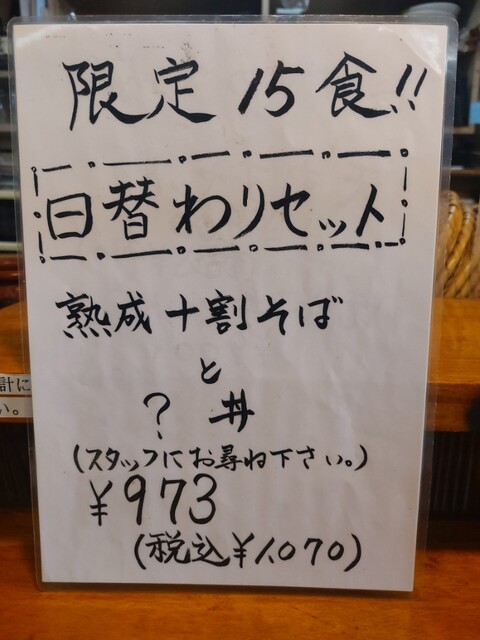 限定15食!!
日替わりセット
熟成十割そば
と
?丼
(スタッフにお尋ね下さい。)
¥973
(税込¥1,070)
計に
い。